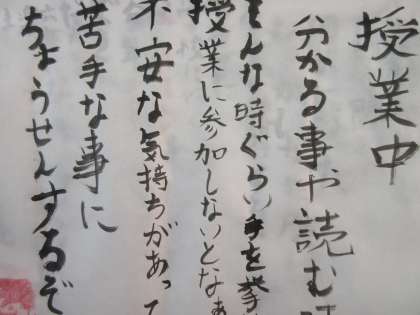 授業中
分かる事や読む
そんな時ぐらい手を挙
授業に参加しないとなぁ
不安な気持ちがあって
苦手な事に
ちょうせんするぞ